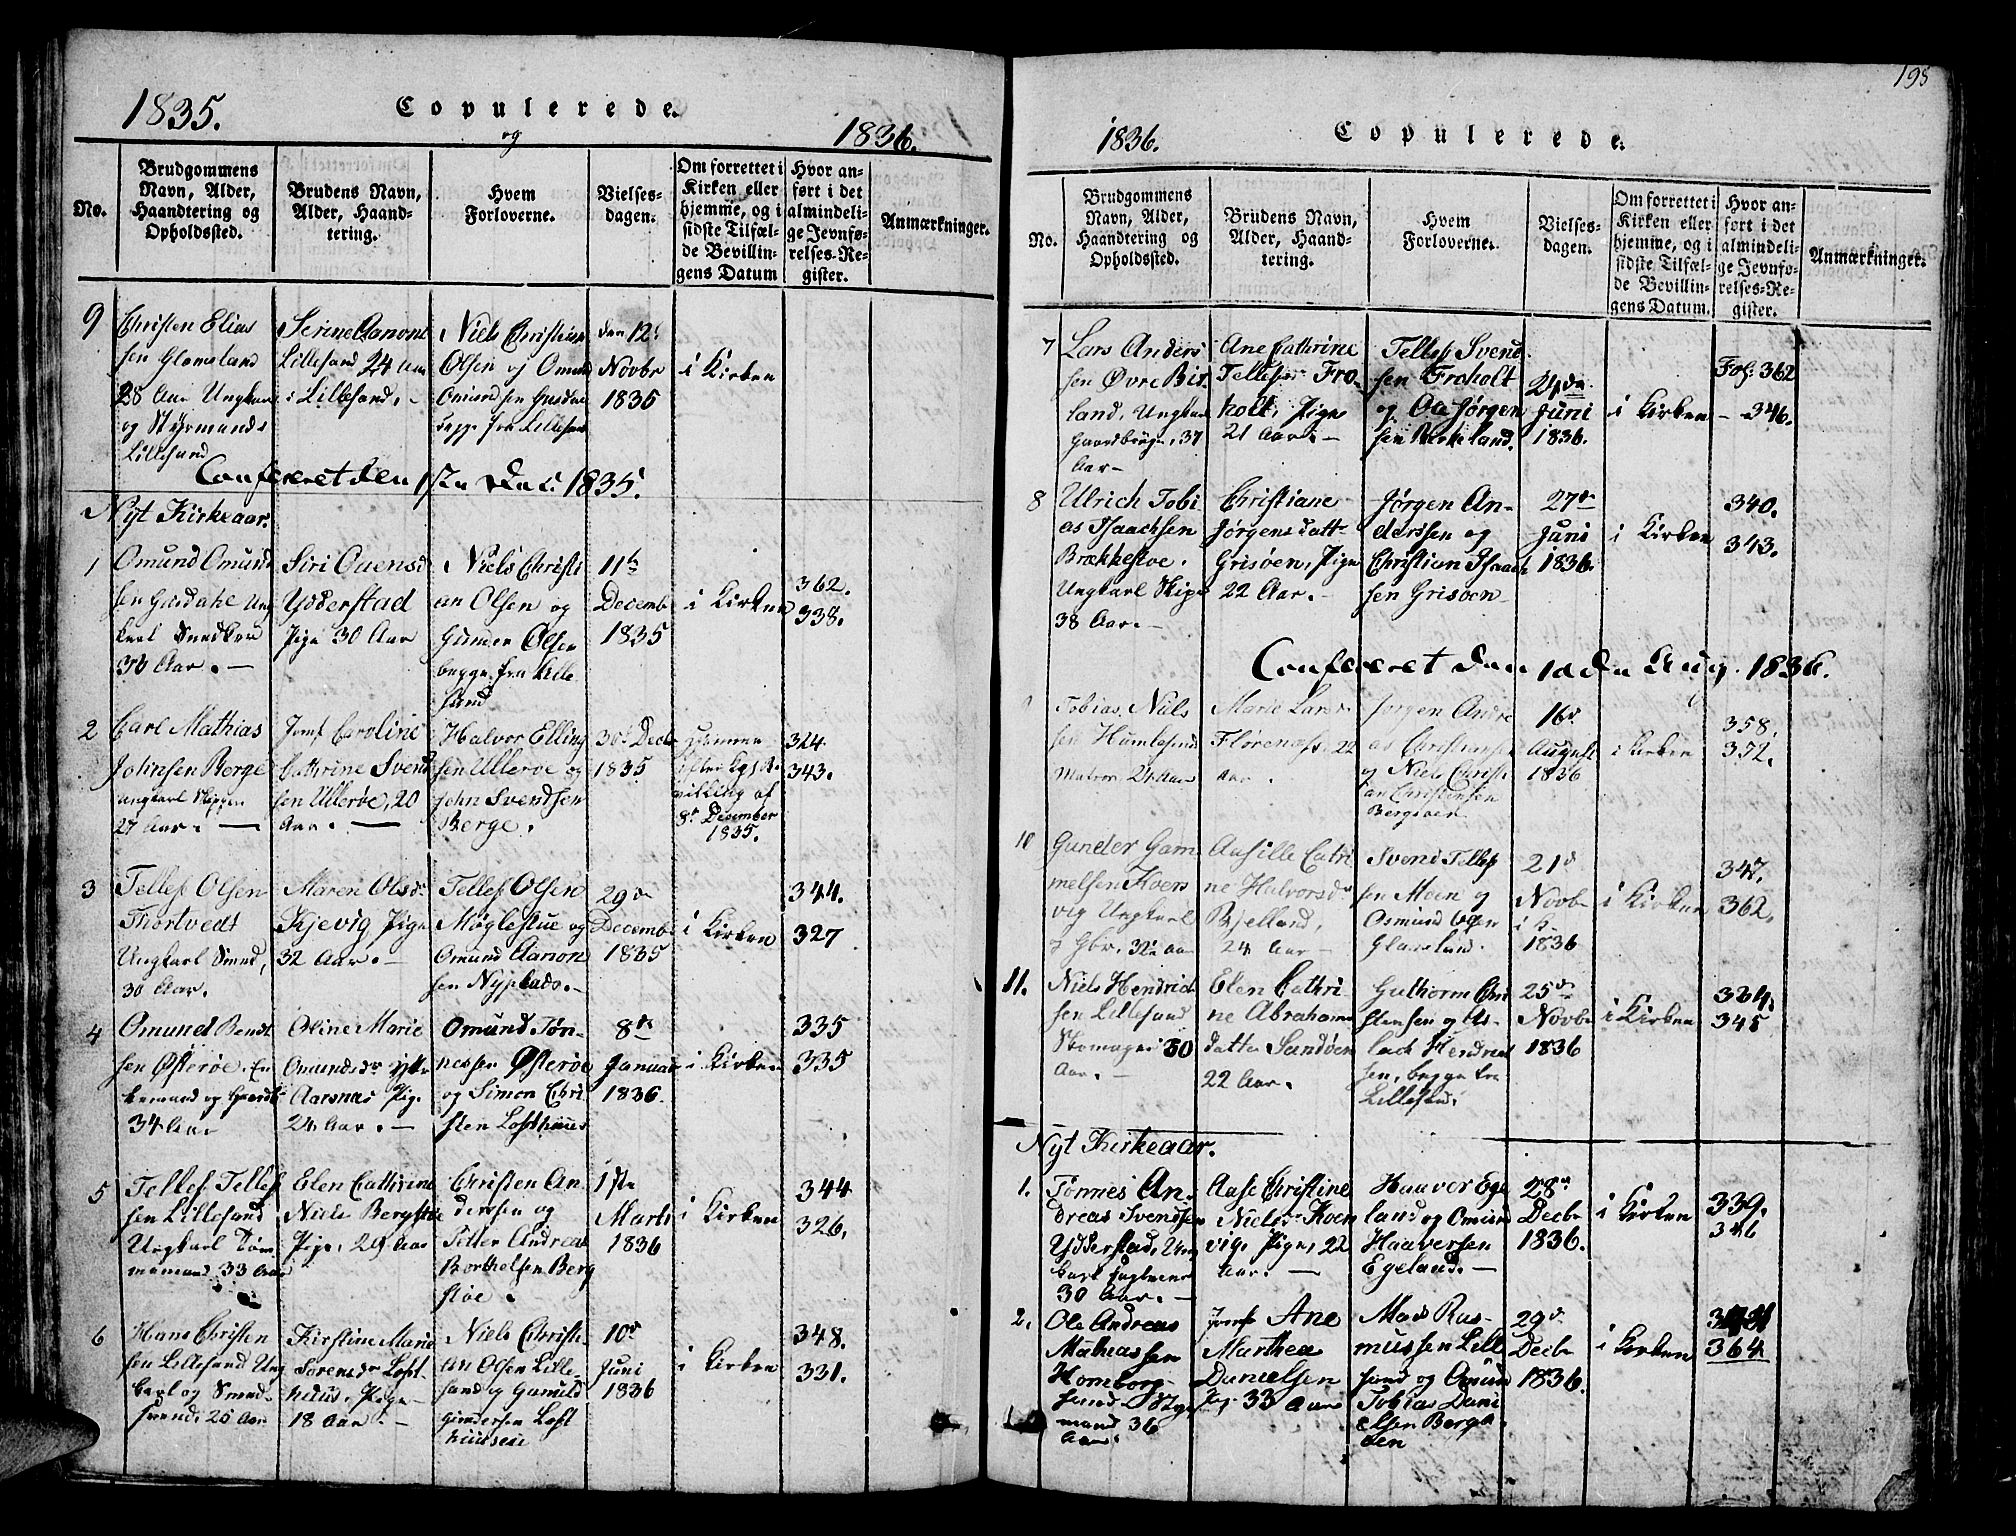 1835.
Copulerede.
og
1836.
No.
Brudgommens Navn, Alder, Haandtering og Opholdssted.
Brudens Navn, Alder, Haandtering.
Hvem Forloverne.
Vielsesdagen.
Om forrettet i Kirken eller hjemme, og i sidste Tilfælde Bevillingens Datum
Hvor anført i det almindelige Jevnførelses-Register.
Anmærkninger.
9
Christen Elias
sen Glamsland
28 Aar Ungkarl
og Styrmand
Lillesand
Serine Aanons
Lillesand 24 Aar
i Lillesand. -
Niels Christian
Olsen og Omund
Omundsen
begge fra Lillesand
den 12te
Novbr
1835
i Kirken
Confereret den 17de Dec. 1835.
Nyt Kirkeaar.
1
Omund Omund
sen Gusdahl Ung
karl
30 Aar. -
Siri Ouensd
Ydderstad
Pige 30 Aar
Niels Christi
an Olsen og
Gunner Olsen
begge fra Lille
sand
11te
Decemb
1835
i Kirken
362.
338.
2
Carl Mathias
Johnsen Berge
Ungkarl Skipper
27 Aar. -
Jomf Caroline
Cathrine Svend
sen Ulleröe, 20
Aar. -
Halvor Elling
sen Ulleröe og
John Svendsen
Berge.
30te Decb
1835
hjemme
efter Kgl. Be
villing af
8de December
1835.
324.
343.
3
Tellef Olsen
Tortvedt
Ungkarl Smed,
30 Aar.
Maren Olsdr
Kjevig Pige
32 Aar. -
Tellef Olsen
Møglestue og
Omund Aanon
sen Nyplads. -
29de
Decemb
1835
i Kirken
344.
327
4
Omund Bendt
sen Østerøe. En
kemand og Gaardb
34 Aar
Oline Marie
Omundsdr Ytre
Aarsnæs Pige
24 Aar. -
Omund Tøn-
nessen Østerøe
og Simon Chri
sten Lofthuus
8de
Januar
1836.
i Kirken
335
335
5
Tellef Tellef
sen Lillesand
Ungkarl Tøm
mermand 33 Aar
Elen Cathrine
Niels Bergstøe
Pige, 29 Aar
Christen An
derssen og
Peter Andreas
Borthelsen Berg
støe.
1ste
Marts
1836
i Kirken
344
326.
6
Hans Christen
sen Lillesand Ung
karl og Smed-
svend, 25 Aar
Kirstine Marie
Sorensdr Loft
huus, Pige -
18 Aar. -
Niels Christi
an Olsen Lille-
sand og Gunuld
Gundersen Loft
huusene
10de
Juni
1836
i Kirken
348.
331.
195
1836.
Copulerede.
No.
Brudgommens Navn, Alder, Haandtering og Opholdssted.
Brudens Navn, Alder, Haandtering.
Hvem Forloverne.
Vielsesdagen.
Om forrettet i Kirken eller hjemme, og i sidste Tilfælde Bevillingens Datum.
Hvor anført i det almindelige Jevnførelses-Register.
Anmærkninger.
7
Lars Anders
sen Øvre Bir
land, Ungkarl
Gaardbruger, 37
Aar -
Ane Cathrine
Tellefsdr Fro
holt, Pige
21 Aar. -
Tellef Svend
sen Froholt
og Ole Jørgen
sen Birkeland.
24de
Juni
1836.
i Kirken
Fol. 362
- 346.
8
Ulrich Tobi
as Isaachsen
Brækkestøe.
Ungkarl Skip
38 Aar. -
Christiane
Jørgensdatt-
Grisøen, Pige
22 Aar. -
Jørgen An-
derssen og
Christian Isaach
sen Grisøen
27de
Juni
1836.
i Kirken
340.
343.
Confereret den 10de Aug. 1836.
Tobias Niels
sen Humlesund
Matros, 24 Aar
Marie Lars
Florenæss, 22
Aar.
Jorgen Andre
as Christensen
og Niels Christi
an Christensen
Bergsøen
16de
August
1836
i Kirken
358.
372.
10
Gunder Gam
melsen Koers
vig Ungkarl
32 Aar
Aasille Catri
ne Halvorsdr
Bjelland,
24 Aar -
Svend Tellef
sen Moen og
Osmund
Glamsland.
21de
Novbr
1836
i Kirken
347.
362.
11.
Niels Hendrich
sen Lillesand
Skomager 30
Aar. -
Elen Cathri
ne Abrahams
datter Sandøen
22 Aar.
Guthorm Chri
stensen og As-
lach Hendrich
sen, begge fra
Lillesand.
25de
Novbr
1836
i Kirken
334.
345
Nyt Kirkeaar.
1.
Tønnes An-
dreas Svendsen
Ydderstad, Ung
karl
30 Aar. -
Aase Christine
Nielsdr Koen
vig, Pige, 22
Aar. -
Haaver Ege
land og Omund
Haaversen
Egeland. -
28de
Decbr
1836.
i Kirken
339.
346
2.
Ole Andreas
Mathiassen
Homborg-
sund Styr
mand 36
Aar.
Jomf Ane
Marthea
Danielsen
33 Aar
Mads Ras-
mussen Lille
sand og Omund
Tobias Dani
elsen Bergs
øen
29de
Decbr
1836.
i Kirken
364.